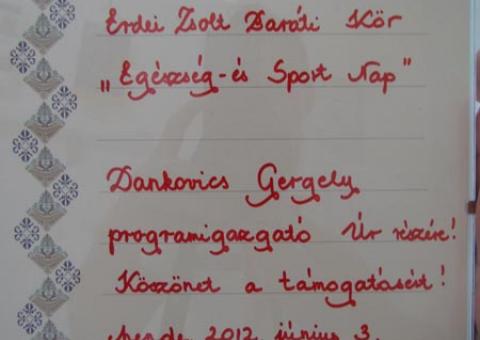 Erdei Zsolt Baráti Kör
„Egészség-és Sport Nap"
Dankovics Gergely
programigazgató Úr részére!
Köszönet a támogatásért!
Mende 2012 június 3.